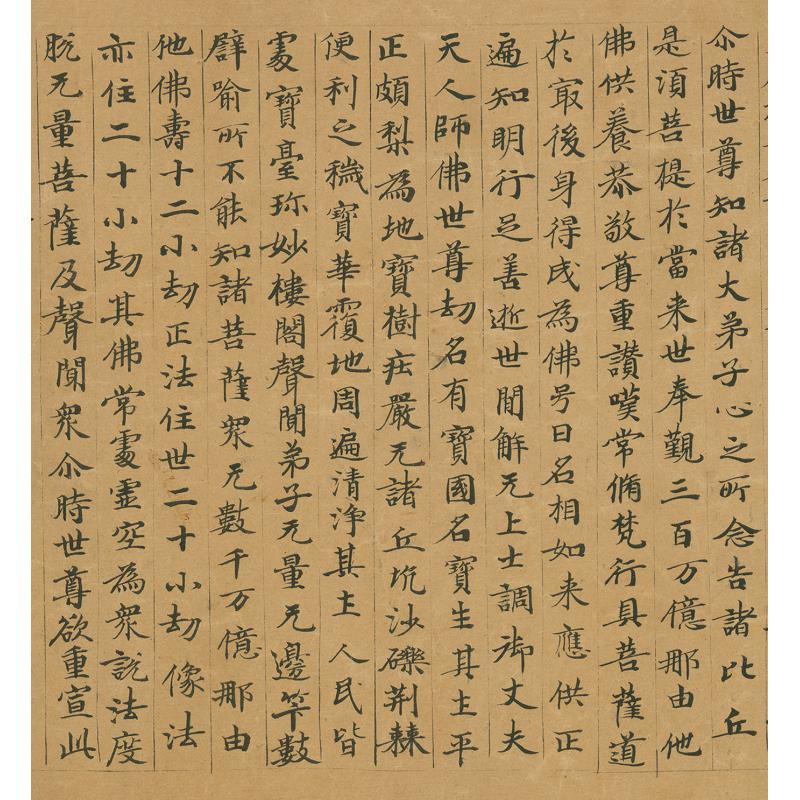 尒時世尊知諸大弟子心之所念告諸比丘
是湏菩提於當来世奉覲三百万億那由他
佛供養恭敬尊重讃嘆常脩梵行具菩薩道
於冣後身得成為佛号曰名相如来應供正
遍知明行足善逝世間解无上士調御丈夫
天人師佛世尊劫名有寶國名寶生其土平
正頗梨為地寶樹庄嚴无諸丘坑沙礫荆棘
便利之穢寶華覆地周遍清浄其土人民皆
處寶臺珎妙樓閣聲聞弟子无量无邊筭數
辟喻所不能知諸菩薩衆无數千万億那由
他佛壽十二小劫正法住世二十小劫像法
亦住二十小劫其佛常處虚空為衆説法度
脱无量菩薩及聲聞衆尒時世尊欲重宣此